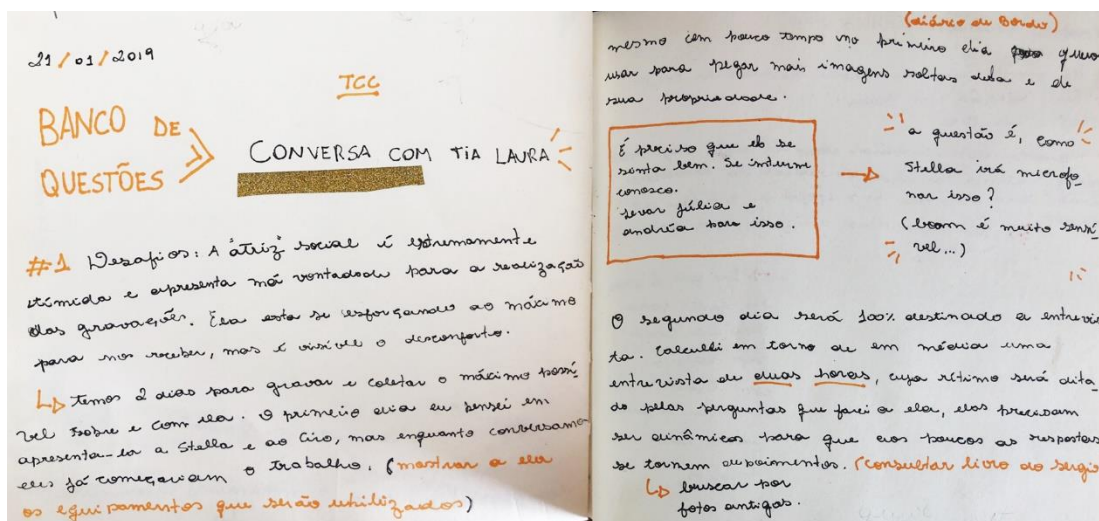 21/01/2019
TCC
BANCO DE
QUESTÕES
CONVERSA COM TIA LAURA
#1 Desafios: A "atriz" social é extremamente
tímida e apresenta má vontade para a realização
das gravações. Ela esta se esforçando ao máximo
para nos receber, mas é visível o desconforto.
↳ temos 2 dias para gravar e coletar o máximo possí
vel sobre e com ela. O primeiro dia eu pensei em
apresenta-la a Stella e ao Ciro, mas enquanto conversamos
eles já começariam o trabalho. (mostrar a ela
os equipamentos que serão utilizados)
(diário de Bordo)
mesmo com pouco tempo no primeiro dia quero
usar para pegar mais imagens soltas dela e de
sua propriedade.
É preciso que ela se
sinta bem. Se inturme
conosco.
Levar Júlia e
andréa para isso.
→
a questão é, como
Stella irá microfo
nar isso?
(boom é muito sensí
vel...)
O segundo dia será 100% destinado a entrevis
ta. Calculei em torno de em média uma
entrevista de duas horas, cujo ritimo será dita
do pelas perguntas que farei a ela, elas precisam
ser dinâmicas para que aos poucos as respostas
se tornem depoimentos. (consultar livro do Sergio
↳ buscar por
fotos antigas.